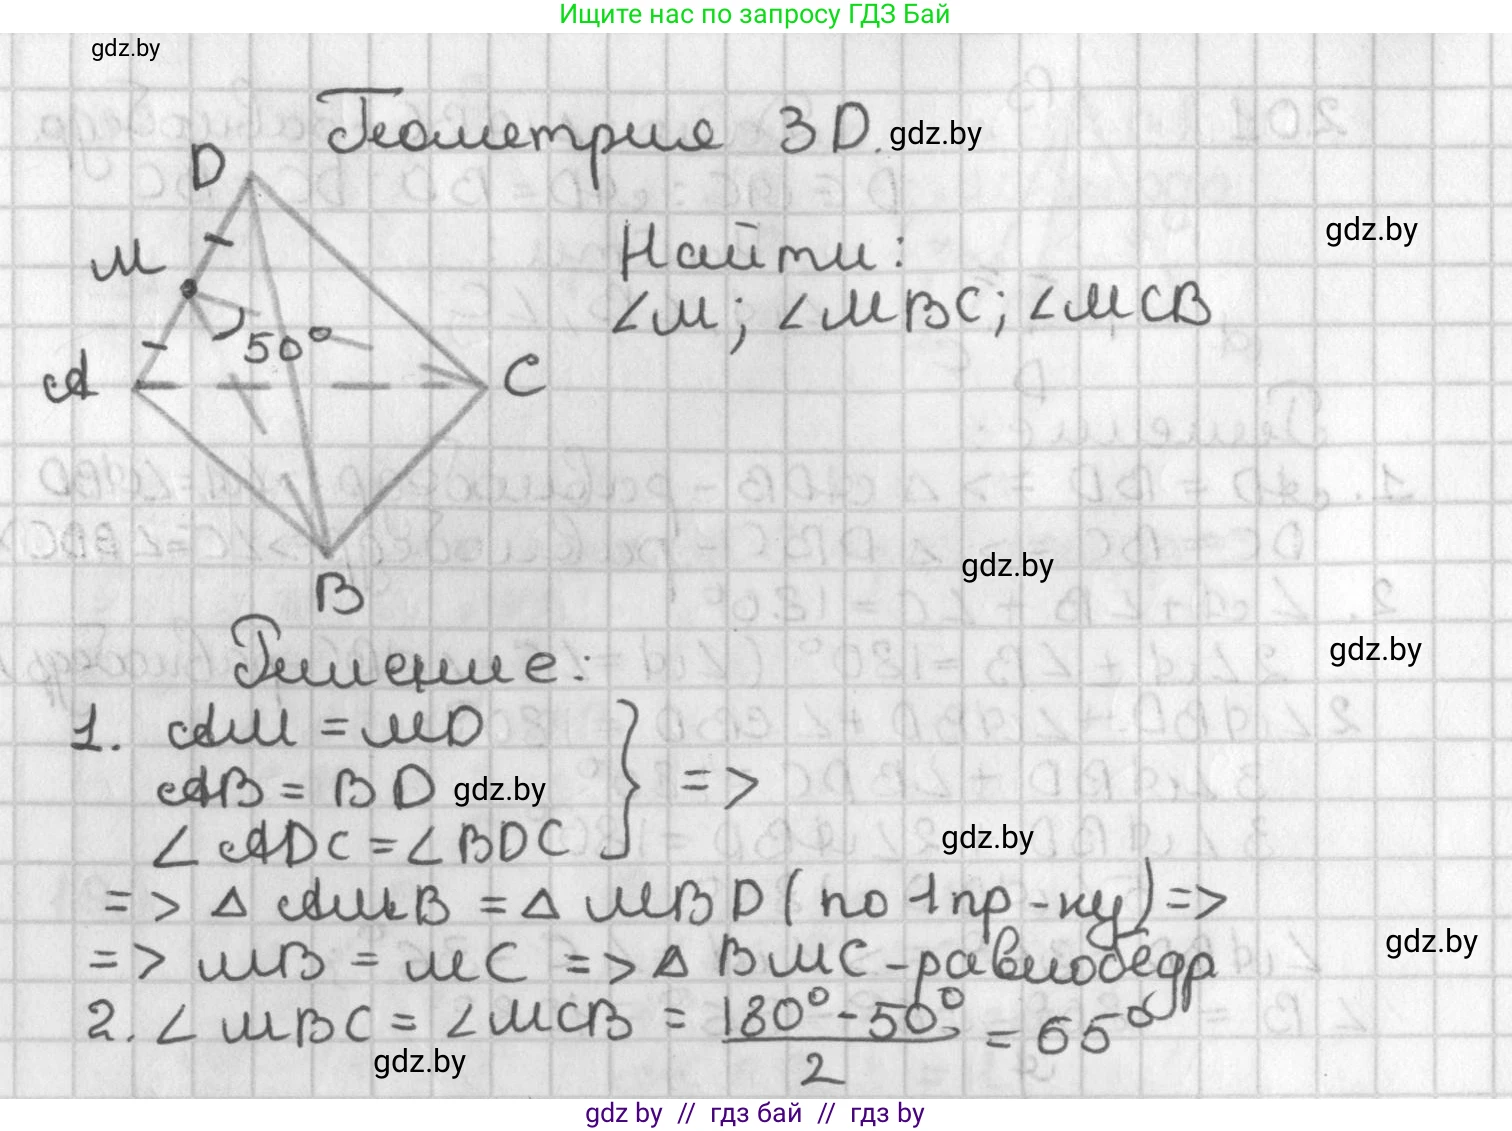 Ищите нас по запросу ГДЗ Бай
gdz.by
Геометрия 3D. gdz.by
D
gdz.by
M
Найти:
∠M; ∠MBC; ∠MCB
50°
A
C
gdz.by
B
Решение:
gdz.by
1. AM = MD
AB = BD gdz.by } =>
∠ADC = ∠BDC
gdz.by
=> △ AMB = △ MBD (по 1 пр-ку) =>
=> MB = MC => △ BMC - равнобедр
gdz.by
2. ∠MBC = ∠MCB = 180° - 50° / 2 = 65°
gdz.by
gdz by // гдз бай // гдз by